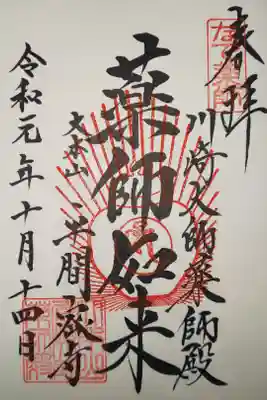 奉拝
川崎大師薬師殿
薬師如来
大本山 平間寺
令和元年十月十四日